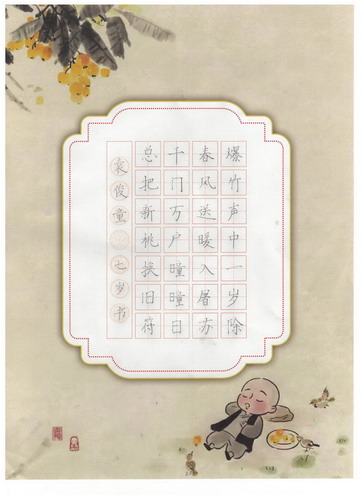 爆竹声中一岁除
春风送暖入屠苏
千门万户曈曈日
总把新桃换旧符
袁俊童 七岁书